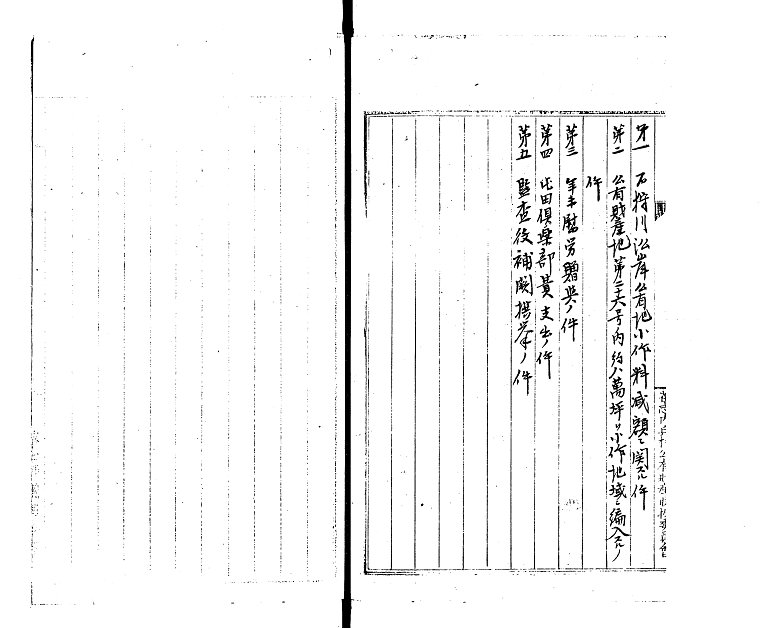 第一 石狩川沿岸公有地小作料減額ニ関スル件
第二 公有財産地第二十六号内約八萬坪ヲ小作地域ニ編入スルノ
件
第三 年末慰労贈與ノ件
第四 屯田倶楽部費支出ノ件
第五 監査役補闕撰挙ノ件